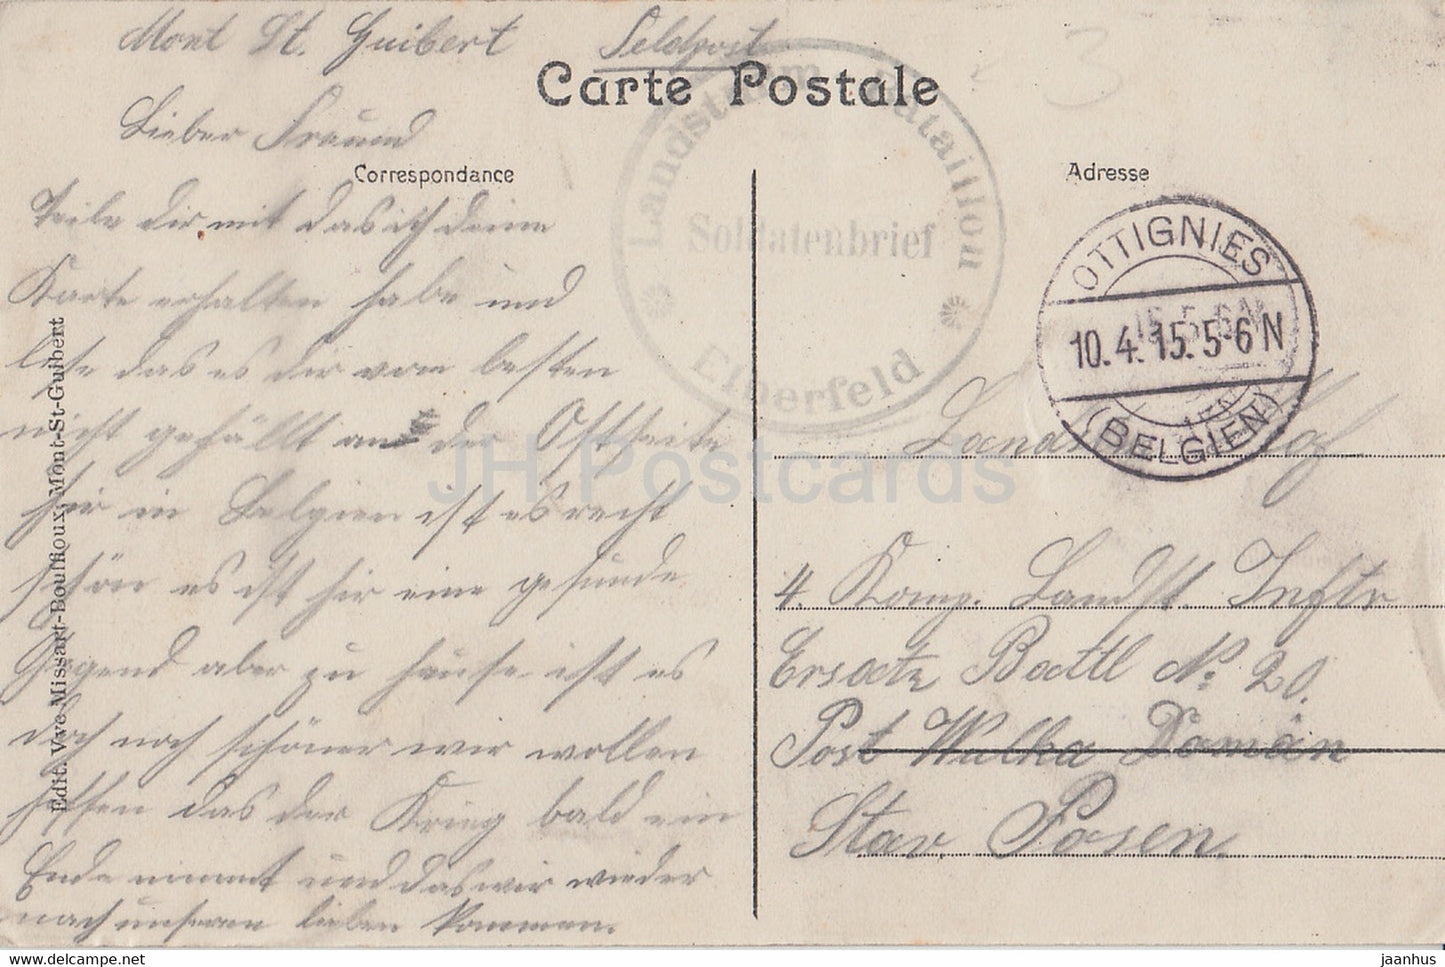 Mont St. Guibert Feldpost
Carte Postale
Lieber Freund
Correspondance
Teile dir mit das ich deine
Karte erhalten habe und
lese das es dir vom besten
nicht gefällt an der Ostseite
hir in Belgien ist es recht
schön es ist hir eine gesunde
Gegend aber zu hause ist es
doch noch schöner wir wollen
hoffen das der Krieg bald ein
Ende nimmt und das wir wieder
nach unseren lieben kommen.
Edit. Vve Missart-Bouffioux, Mont-St-Guibert
Landsturm Bataillon
Soldatenbrief
Elberfeld
Adresse
OTTIGNIES
10.4.15.5-6N
(BELGIEN)
4. Komp. Landst. Inftr
Ersatz Battl No. 20.
Post Wulka Domän
Stav. Posen.
JH Postcards
www.delcampe.net
jaanhus